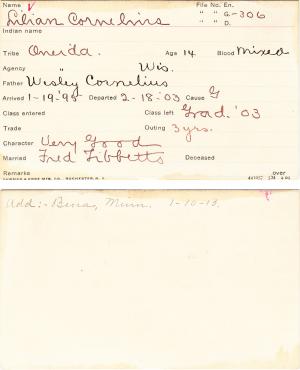 Name File No. En.
Lilian Cornelius " " G-306
Indian name " " D.
Tribe Oneida. Age 14 Blood Mixed
Agency " Wis.
Father Wesley Cornelius
Arrived 1-19-'95 Departed 2-18-'03 Cause G
Class entered Class left Grad. '03
Trade Outing 3 yrs.
Character Very Good
Married Fred Tibbetts Deceased
Remarks over
Add:- Bena, Minn. 1-10-13.